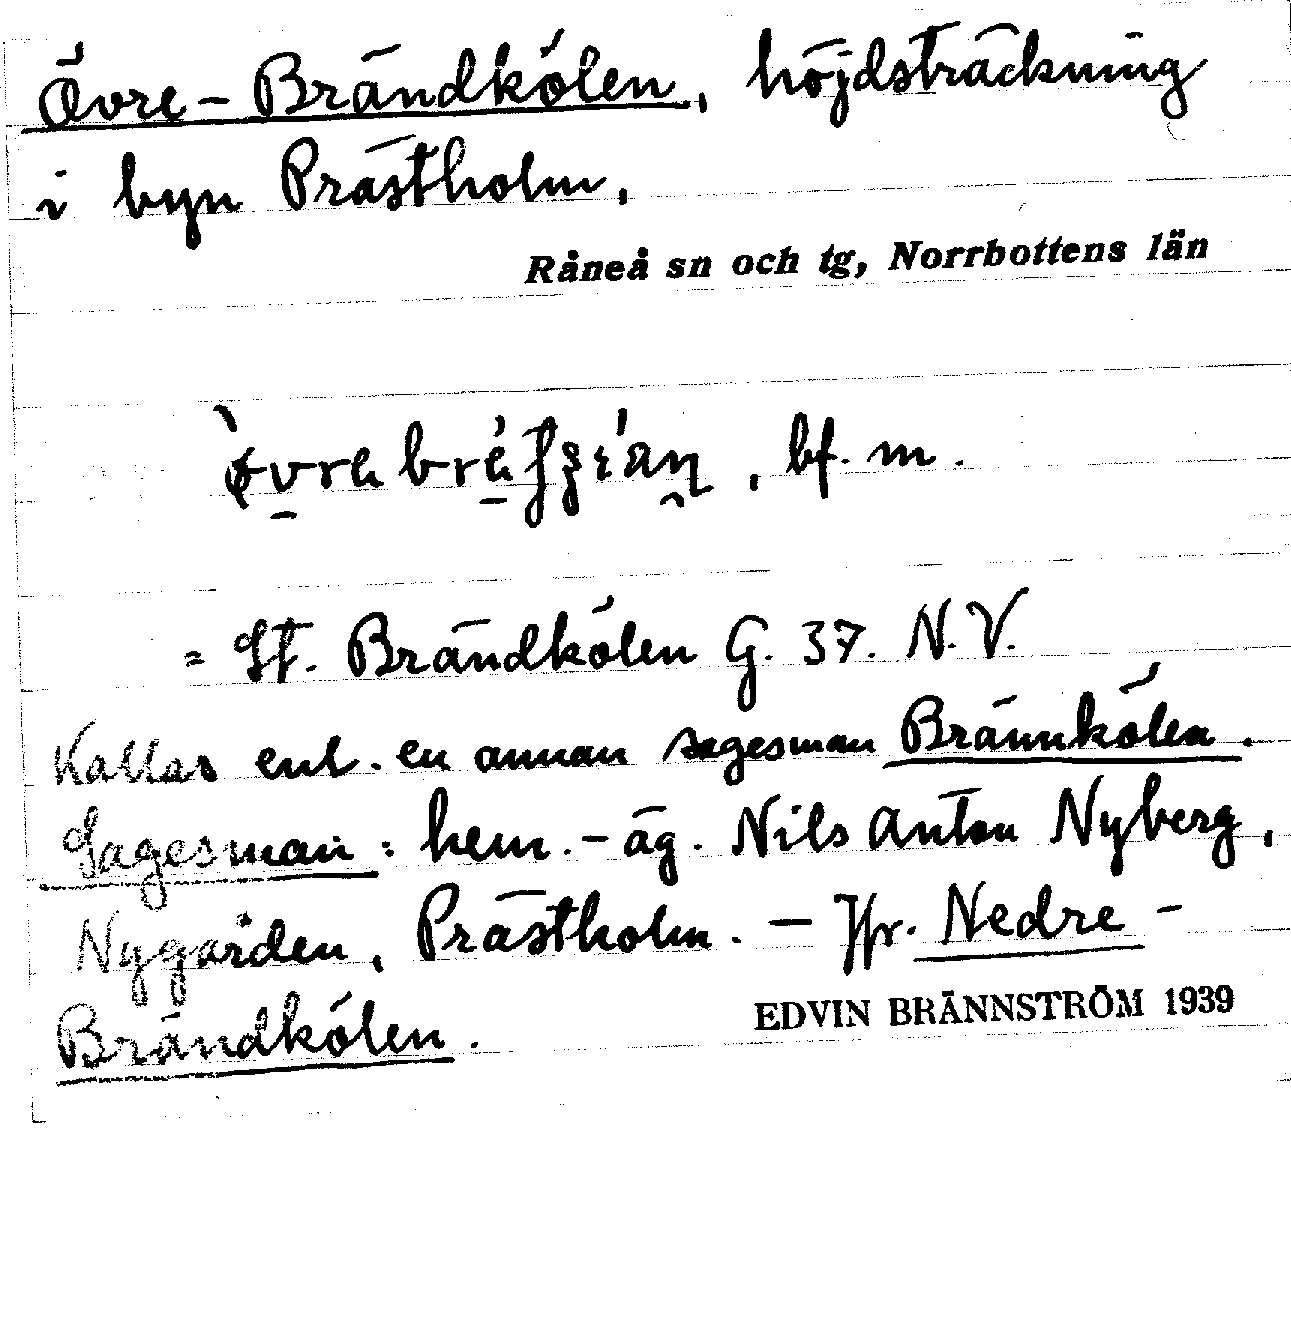 Övre-Brändkölen, höjdsträckning
i byn Prästholm,
Råneå sn och tg, Norrbottens län
, bf. m.
= St. Brändkölen G. 37. N.V.
Kallas enl. en annan sagesman Brännkölen.
Sagesman: hem.-äg. Nils Anton Nyberg,
Nygården, Prästholm. — Jfr. Nedre-
Brändkölen.
EDVIN BRÄNNSTRÖM 1939